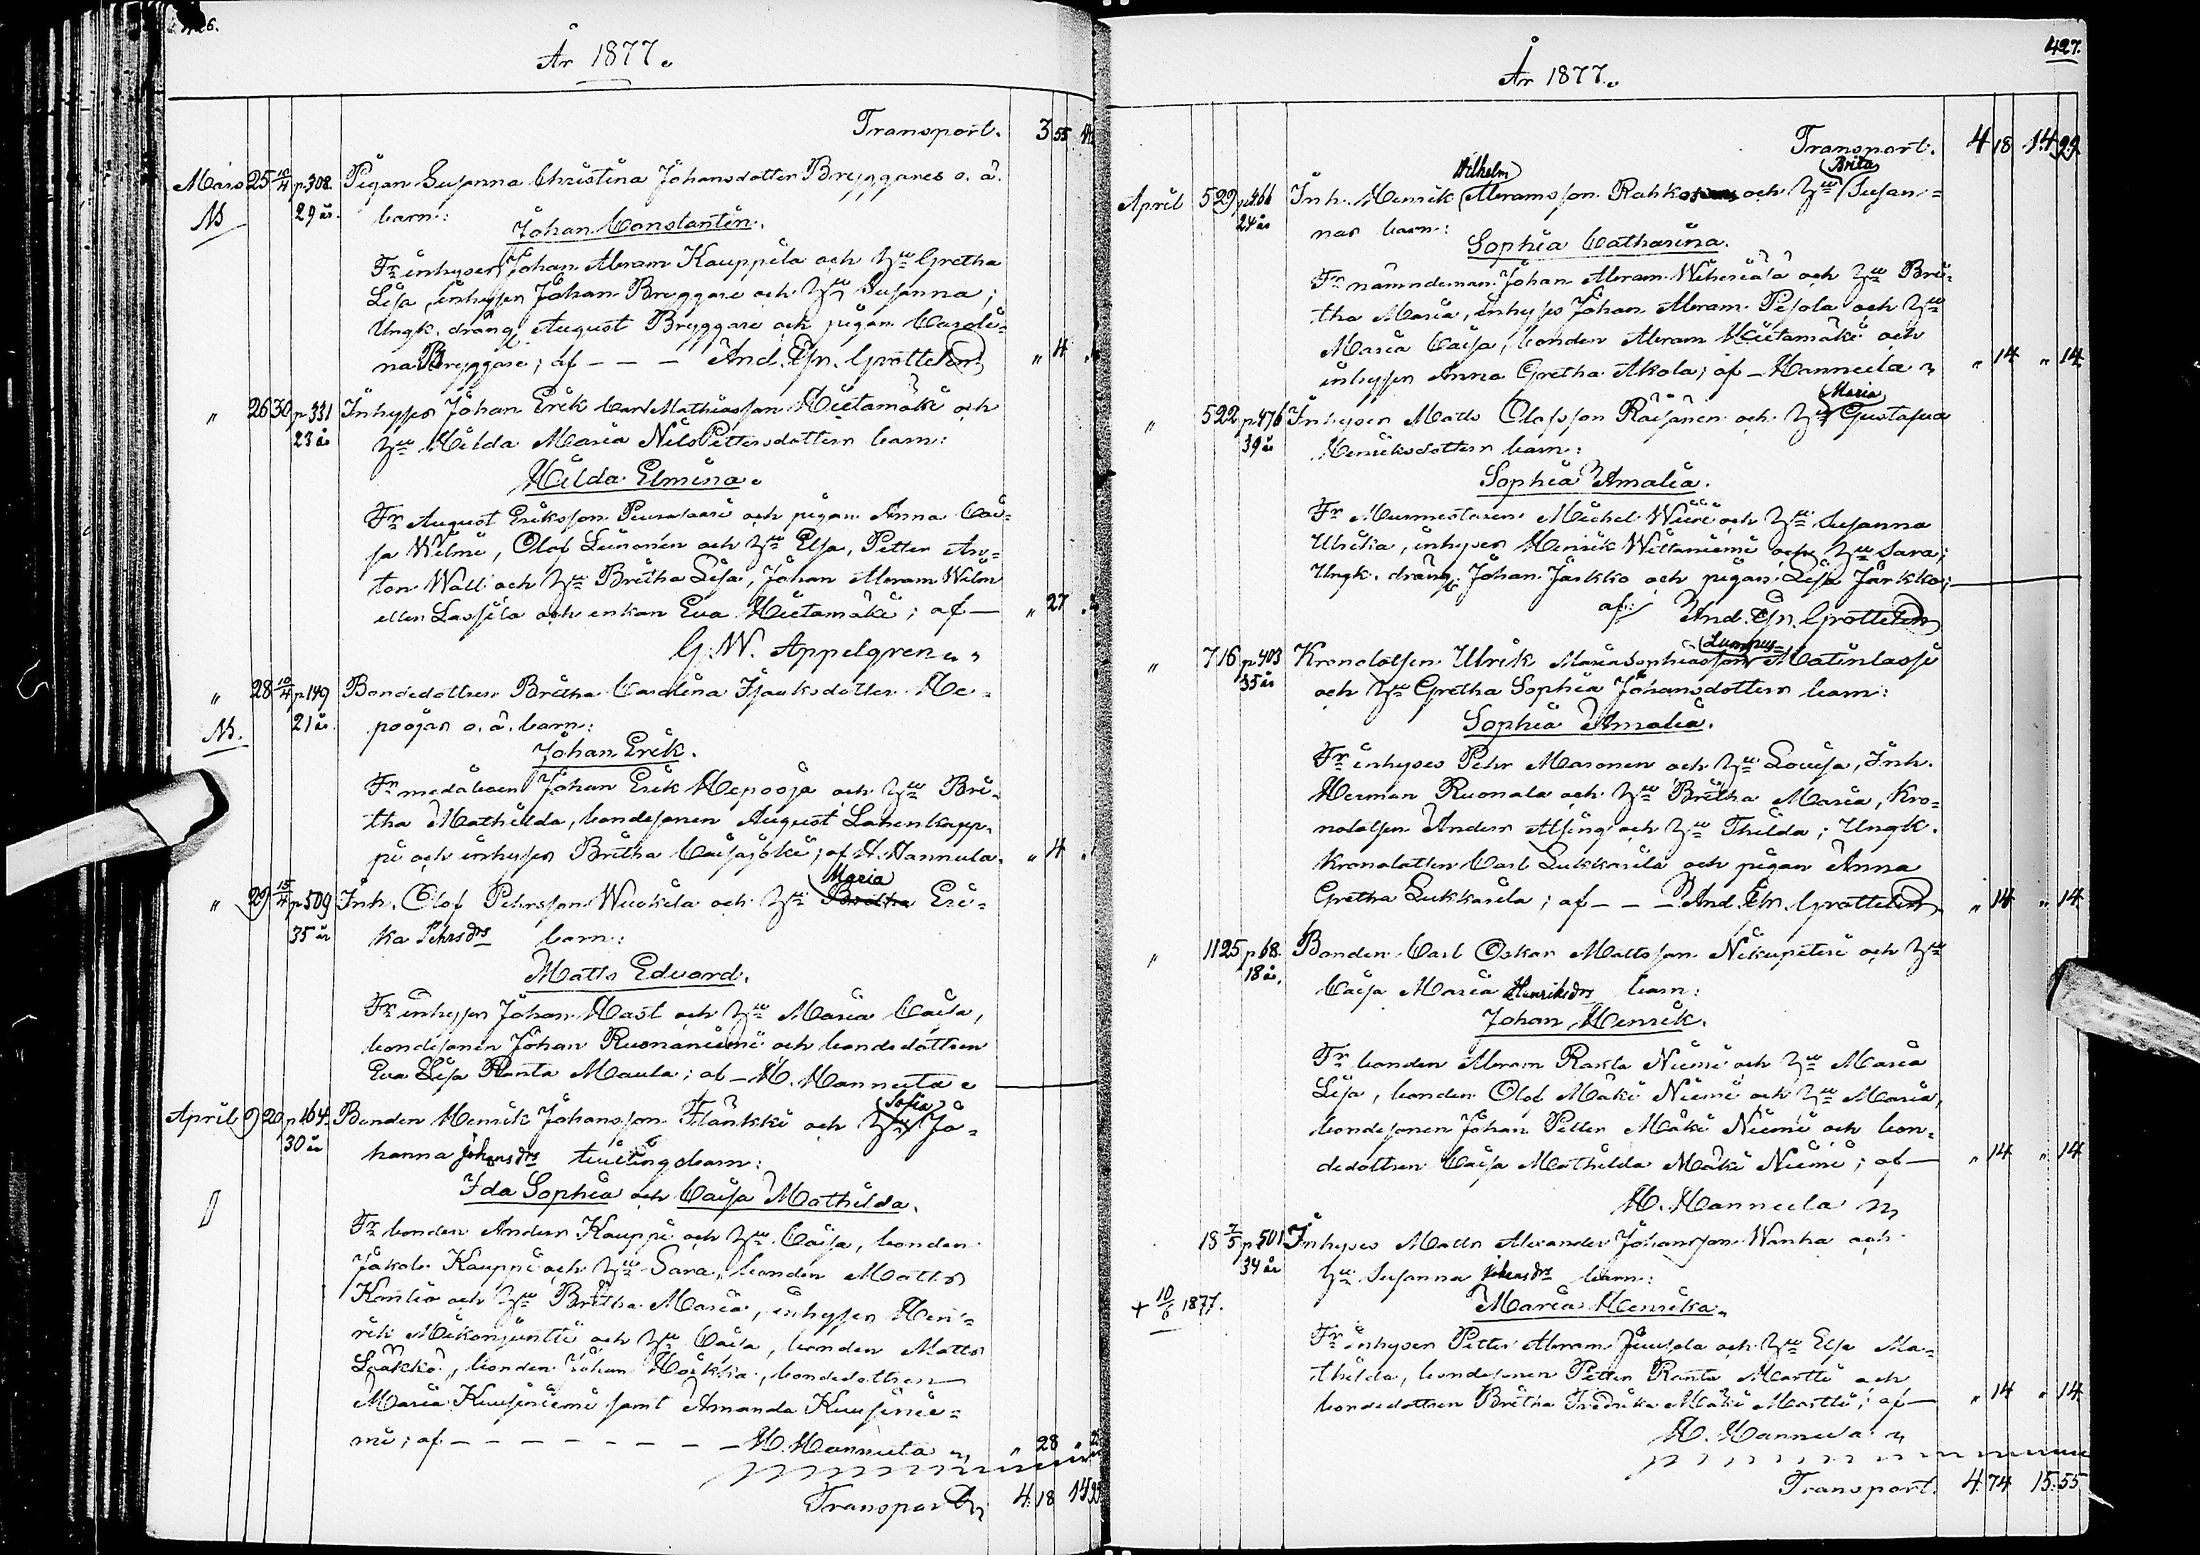 År 1877.
Transport. 3 55
Mars 25 10/4 p. 308. Pigan Susanna Christina Johansdotter Bryggares o. ä.
29 år. barn:
Johan Constantin.
Fr inhyses Johan Abram Kauppila och Hu Gretha
Lisa, inhyses Johan Bryggare och Hu Susanna;
Ungk. dräng August Bryggare och pigan Caroli-
na Bryggare; af — — — And. Joh. Grottelin " 4
" 26 30 p 331 Inhyses Johan Erik Carl Mathiasson Hietamäki och
23 år Hu Hilda Maria Nils Pettersdotters barn:
Hilda Elmina.
Fr August Eriksson Peurasaari och pigan Anna Cai-
sa Wilmi, Olof Leinonen och Hu Elsa, Petter An-
ton Wall och Hu Britha Lisa, Johan Abram Wilmi
eller Lassila och enkan Eva Hietamäki; af — " 27
G. W. Appelgren
" 28 10/4 p 149 Bondedottren Britha Carolina Isaaksdotter He-
21 år. poojas o. ä. barn:
Johan Erik.
Fr Johan Erik Hepooja och Hu Bri-
tha Mathilda, bondesonen August Lahenkaup-
pi och inhyses Britha Caisajoki; af H. Hannula. " 4
Maria
" 29 15/4 p 509 Inh. Olof Pehrsson Wuokila och Hu Britha Eri-
35 år ka Pehrsdrs barn:
Matts Edvard.
Fr inhyses Johan Hast och Hu Maria Caisa,
bondesonen Johan Ruonaniemi och bondedottren
Eva Lisa Ranta Maula; af — H. Hannula
Sofia
April 9 20 p 164. Bonden Henrik Johansson Flankki och Hu Jo-
30 år hanna Johansdrs tvillingebarn:
Ida Sophia och Caisa Mathilda.
Fr bonden Anders Kauppi och Hu Caisa, bonden
Jakob Kauppi och Hu Sara, bonden Matts
Kantia och Hu Britha Maria, inhyses Hen-
rik Mikonjuntti och Hu Caisa, bonden Matts
Lääkkö, bonden Johan Hoikka, bondedottren
Maria Kuusiniemi samt Amanda Kuusinie-
mi; af — — — — — — — H. Hannula " 28
Transport 4 18
427.
År 1877.
Transport. 4 18 14 99
Wilhelm Brita
April 5 29 p 466 Inh. Henrik Abramsson Rahko och Hu Susan-
24 år nas barn:
Sophia Catharina.
Fr nämndeman Johan Abram Wiheriälä och Hu Bri-
tha Maria, inhyses Johan Abram Pesola och Hu
Maria Caisa, bonden Abram Hietamäki och
inhyses Anna Gretha Akola; af — Hannula " 14 " 14
Maria
" 5 22 p 476 Inhyses Matts Olofsson Räisänen och Hu Gustafva
39 år Henriksdotters barn:
Sophia Amalia.
Fr Murmestaren Michel Wiiri och Hu Susanna
Ulrika, inhyses Henrik Wittaniemi och Hu Sara;
Ungk. dräng. Johan Jarkko och pigan Lisa Jarkko;
af: And. Joh. Grottelin
Lumpus-
" 7 16 p 403 Kronolotsen Ulrik Maria Sophiasson Matinlassi
35 år och Hu Gretha Sophia Johansdotters barn:
Sophia Amalia.
Fr inhyses Pehr Maronen och Hu Lovisa, Inh.
Herman Ruonala och Hu Britha Maria, Kro-
nolotsen Anders Alsing och Hu Thilda; Ungk.
kronolotsen Carl Lukkarila och pigan Anna
Gretha Lukkarila; af — — — And. Joh. Grottelin " 14 " 14
" 11 25 p 68. Bonden Carl Oskar Mattsson Nikupeteri och Hu
18 år. Caisa Maria Henriksdrs barn:
Johan Henrik.
Fr bonden Abram Ranta Niemi och Hu Maria
Lisa, bonden Olof Mäki Niemi och Hu Maria,
bondesonen Johan Petter Mäki Niemi och bon-
dedottren Caisa Mathilda Mäki Niemi; af — " 14 " 14
H. Hannula
18 2/5 p 501 Inhyses Matts Alexander Johansson Wanha och
34 år Hu Susanna Johansdrs barn:
+ 10/6 1877. Maria Henrika.
Fr inhyses Petter Abram Juusola och Hu Elsa Ma-
thilda, bondesonen Petter Ranta Martti och
bondedottren Britha Fredrika Mäki Martti; af — " 14 " 14
H. Hannula
Transport. 4 74 15 55